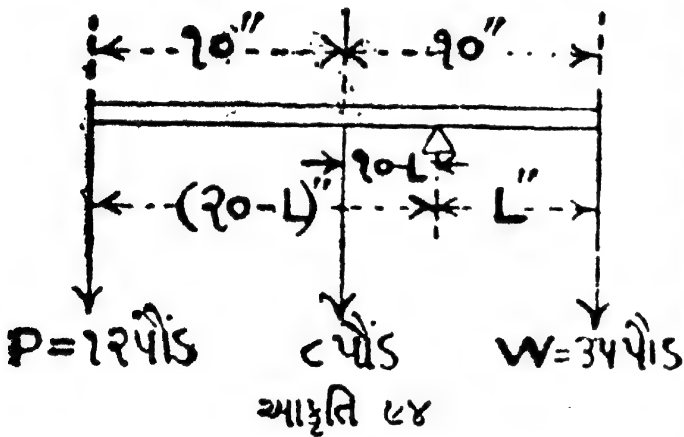 ૧૦" ૧૦"
૧૦-L
(૨૦-L)" L"
P=૧૨પૌંડ ૮પૌંડ W=૩૫પૌંડ
આકૃતિ ૯૪